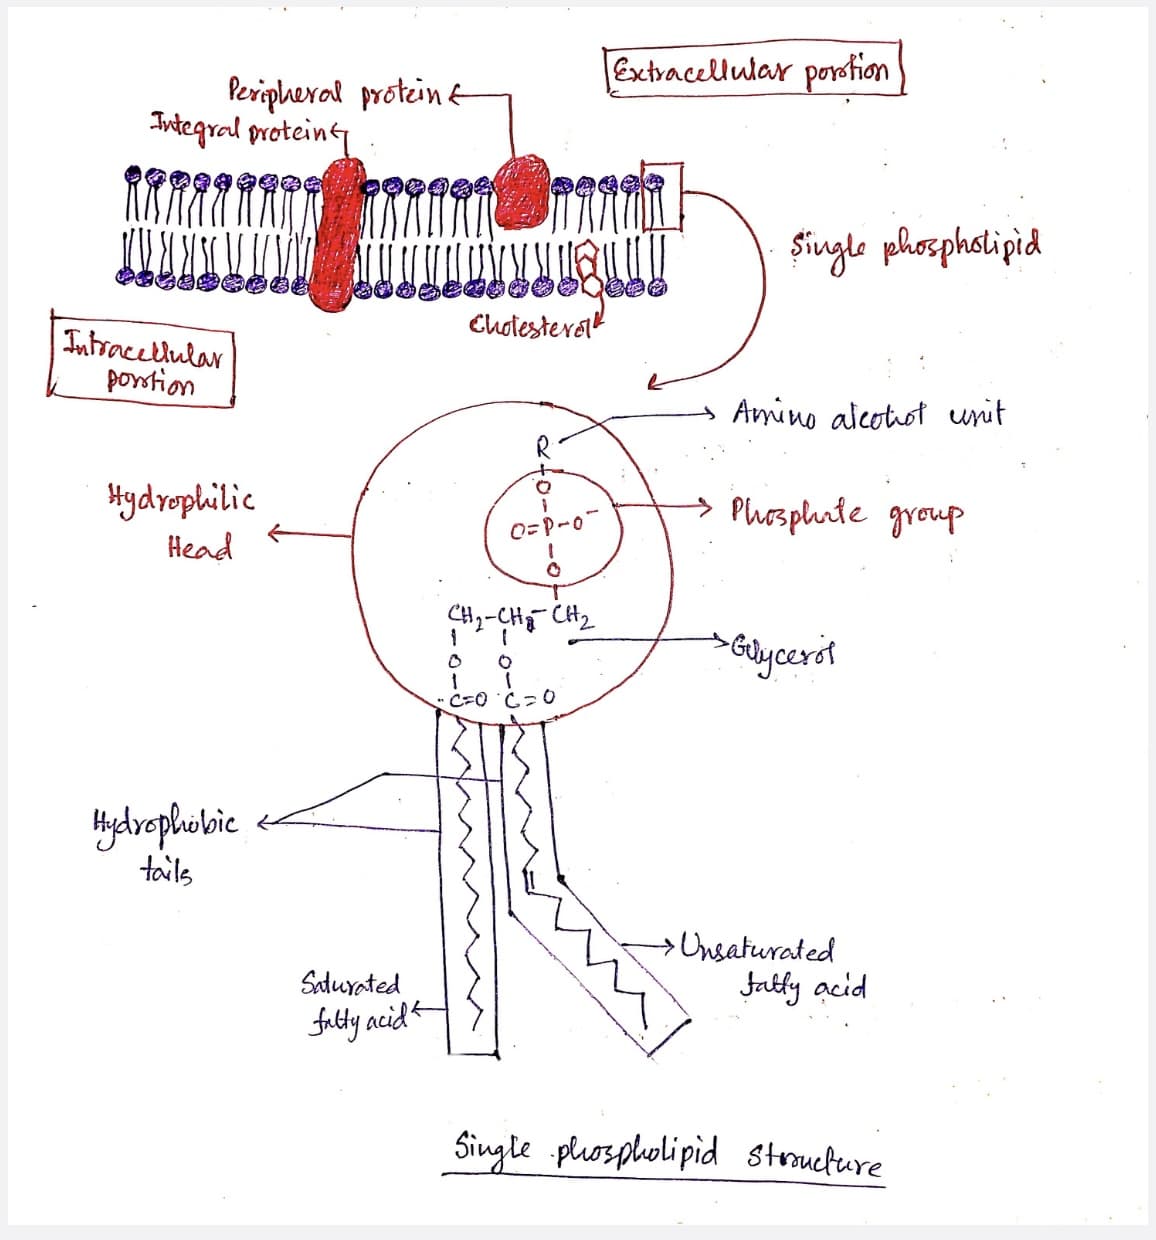 Extracellular portion
Peripheral protein
Integral protein
Single phospholipid
Cholesterol
Intracellular
portion
Amino alcohol unit
R
Hydrophilic
Head
O
O=P-O⁻
O
Phosphate group
CH₂-CH-CH₂
Glycerol
O O
C=O C=O
Hydrophobic
tails
Unsaturated
fatty acid
Saturated
fatty acid
Single phospholipid structure